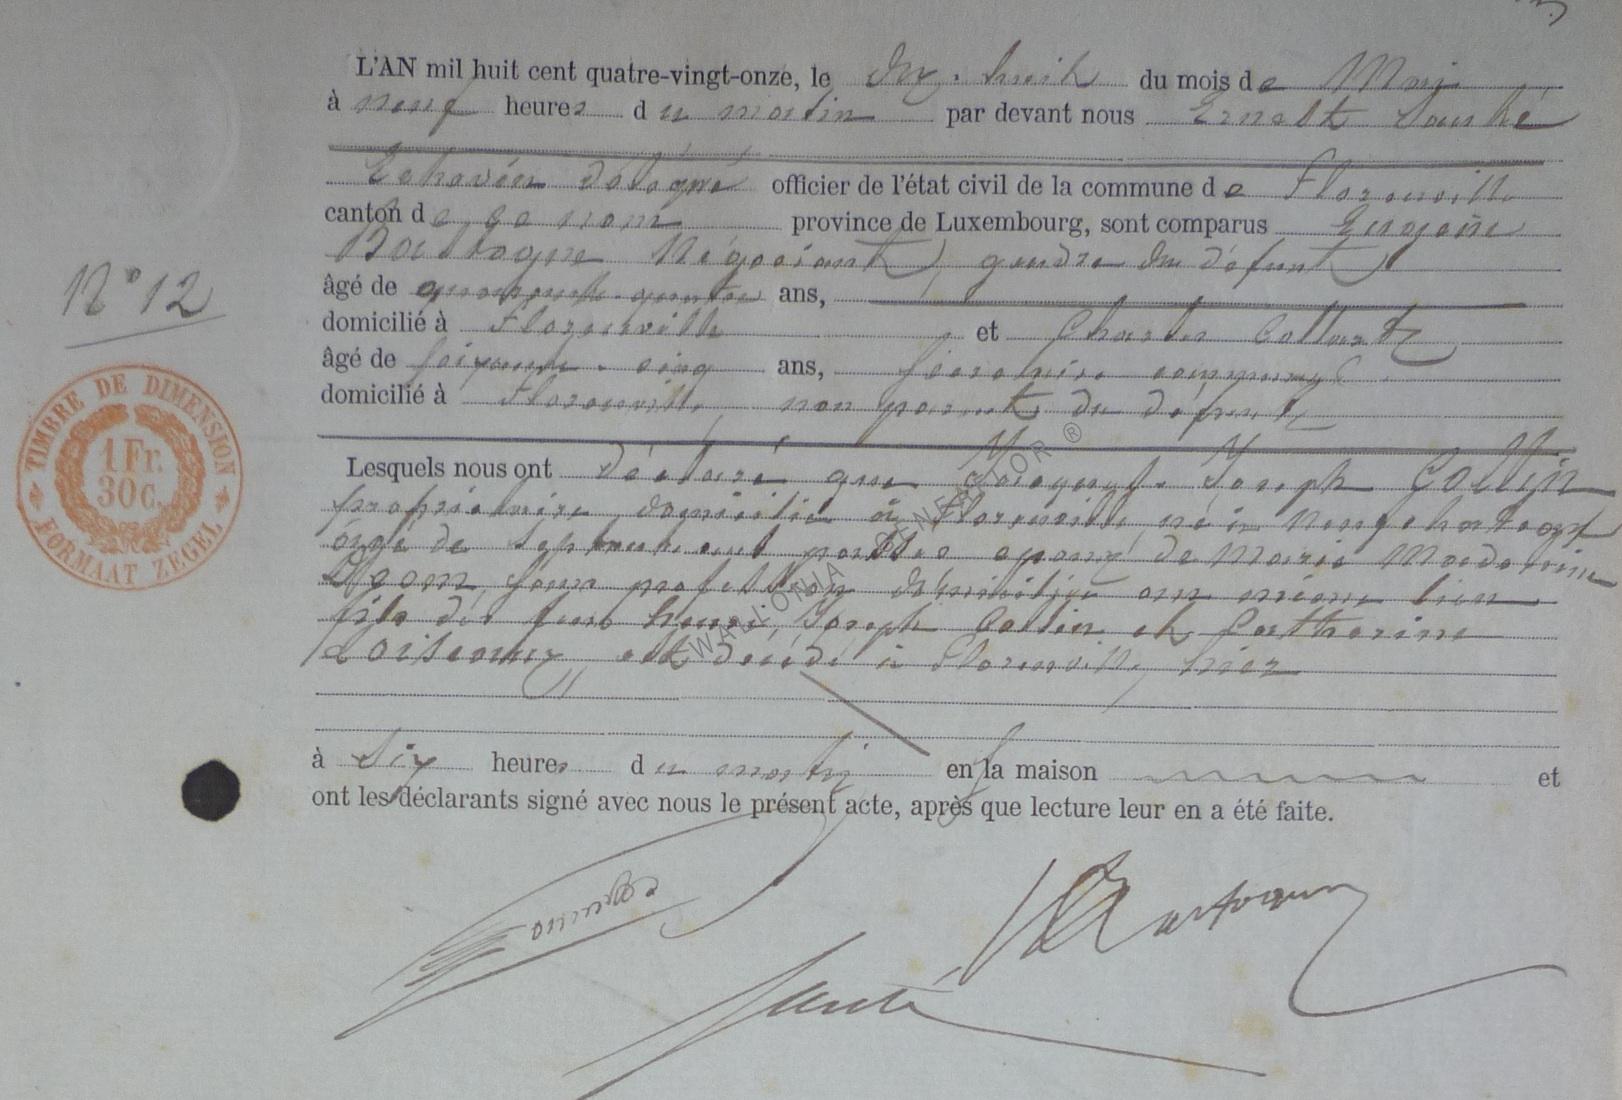 L'AN mil huit cent quatre-vingt-onze, le dix-huit du mois de Mai
à neuf heures du matin par devant nous Ernest
Echevin délégué officier de l'état civil de la commune de Florenville
canton de ce nom province de Luxembourg, sont comparus Eugène
Négociant, gendre du défunt
N° 12
âgé de quarante-quatre ans,
domicilié à Florenville et Charles Collart
âgé de soixante-cinq ans, secrétaire communal
domicilié à Florenville, non parent du défunt
TIMBRE DE DIMENSION
1 Fr.
30 C.
FORMAAT ZEGEL
Lesquels nous ont déclaré que Jacques-Joseph Collin
propriétaire domicilié à Florenville, né à Neufchateau
âgé de septante ans époux de Marie
sans profession domiciliée au même lieu
fils des feus Henri Joseph Collin et Catherine
est décédé à Florenville hier
à six heures du matin en sa maison et
ont les déclarants signé avec nous le présent acte, après que lecture leur en a été faite.
WALLONIA GENEALOR ®